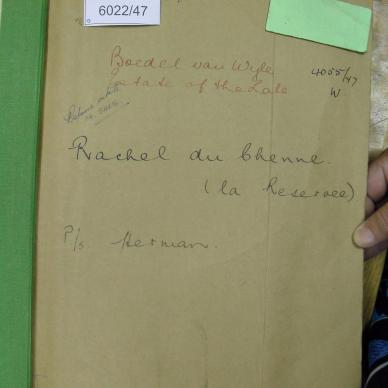 6022/47
Boedel van Wyle
Estate of the Late
4055/47
W.
Rachel du Chenne.
(la Reservee)
P/s Herman.